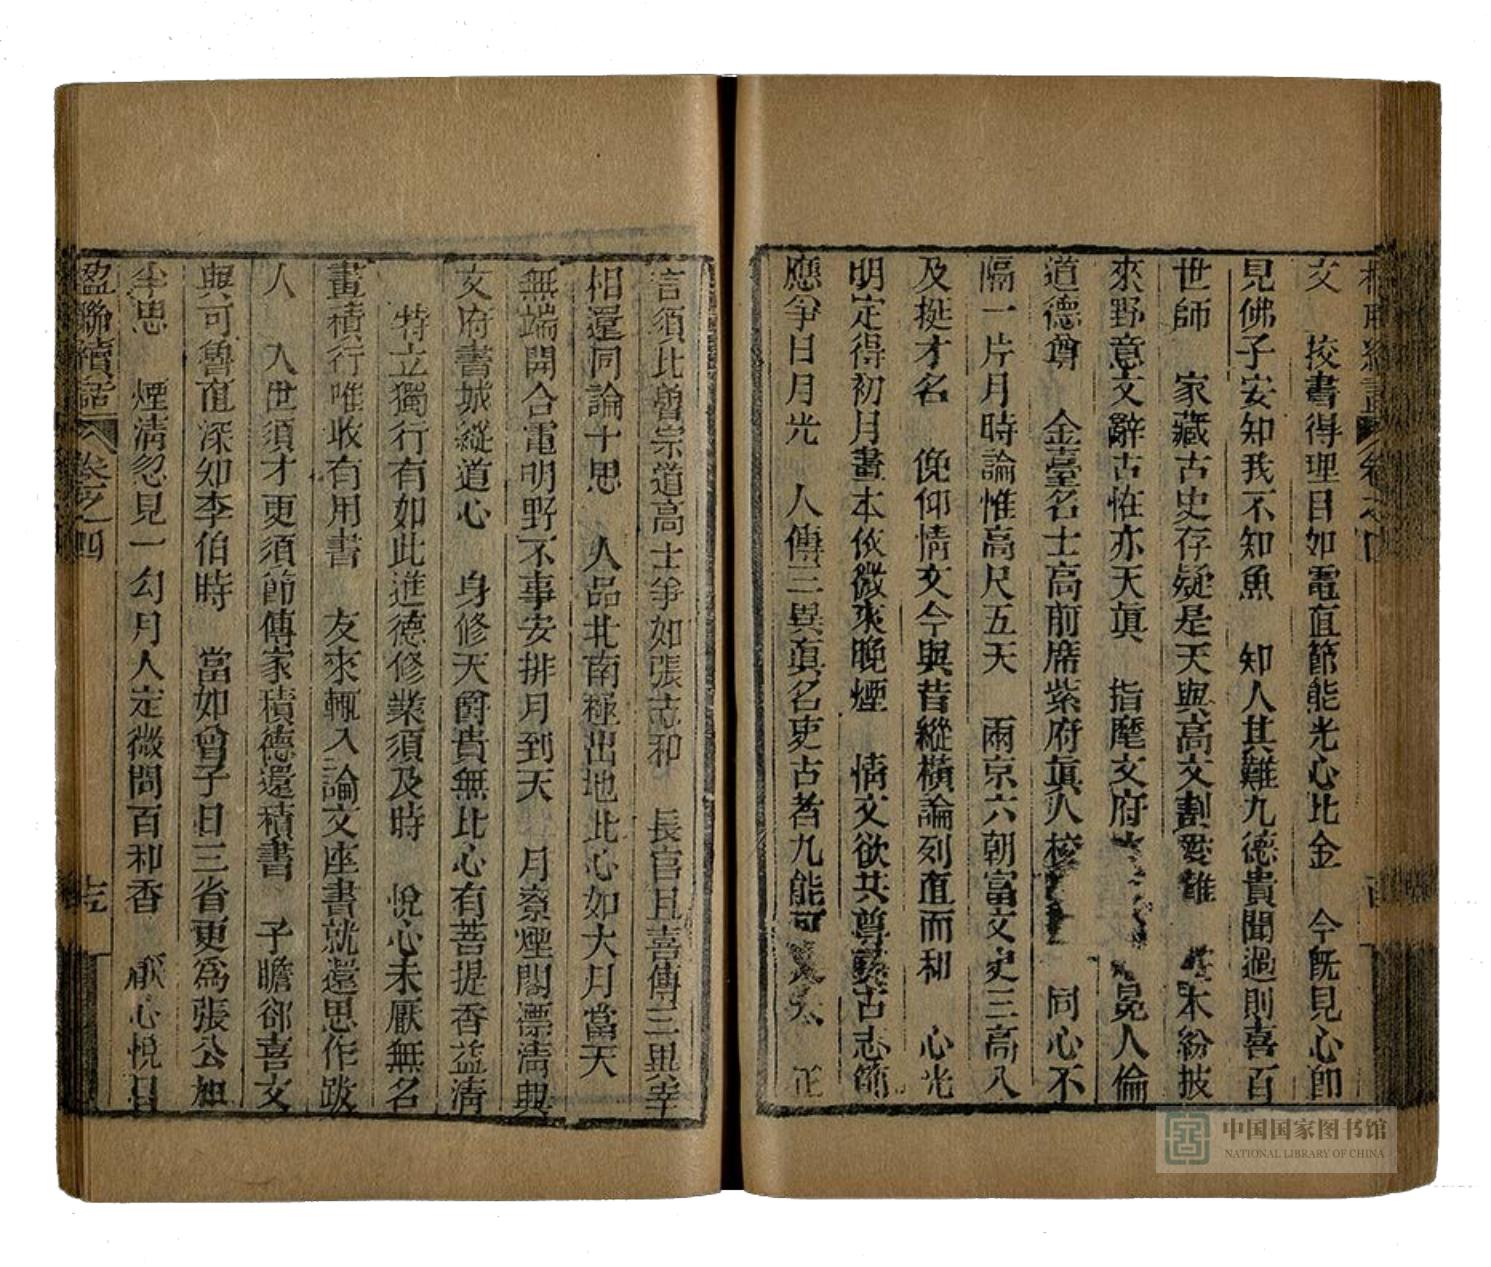 文　挍書得理目如電直節能光心比金　今旣見心卽
見佛子安知我不知魚　知人其難九德貴聞過則喜百
世師　家藏古史存疑是天與高文割愛難　本紛披
來野意文辭古恠亦天眞　指麾文府　人倫
道德尊　金臺名士高前席紫府眞人校　同心不
隔一片月時論惟高尺五天　兩京六朝富文史三高八
及挺才名　俛仰情文今與昔縱橫論列直而和　心光
明定得初月畫本依微來晚煙　情文欲共尊彝古志節
應爭日月光　人傳三異眞名吏古者九能　正
言須比魯宗道高士爭如張志和　長官且喜傳三異幸
相還同論十思　人品北南極出地此心如大月當天
無端開合電明野不事安排月到天　月寮煙閣漂淸興
文府書城縱道心　身修天爵貴無比心有菩提香益淸
特立獨行有如此進德修業須及時　悅心未厭無名
畫積行唯收有用書　友來輒入論文座書就還思作跋
人　入世須才更須節傳家積德還積書　子瞻郤喜文
與可魯直深知李伯時　當如曾子日三省更爲張公加
半思　煙淸忽見一勾月人定微聞百和香　厭心悅目
楹聯續話　卷之四
中国国家图书馆
NATIONAL LIBRARY OF CHINA